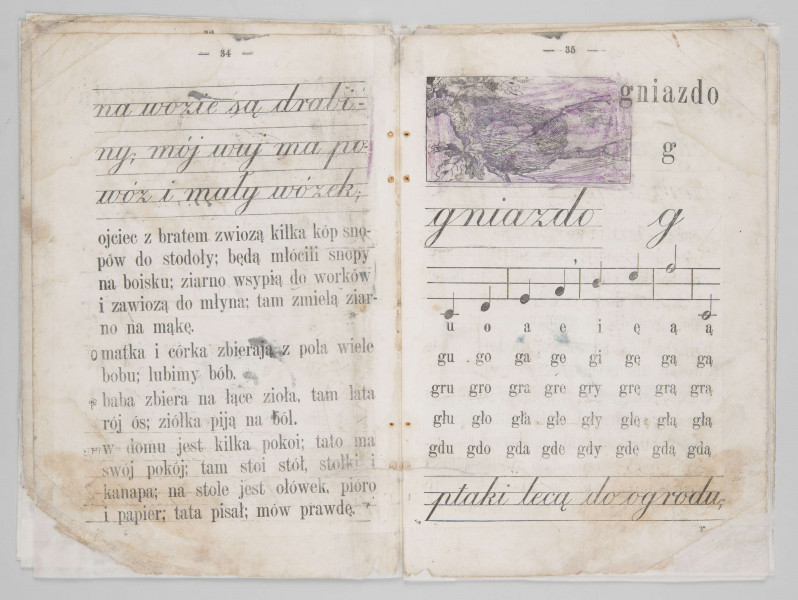 — 34 —
na wozie są drabi-
ny; mój wuj ma po-
wóz i mały wózek;
ojciec z bratem zwiozą kilka kóp sno-
pów do stodoły; będą młócili snopy
na boisku; ziarno wsypią do worków
i zawiozą do młyna; tam zmielą ziar-
no na mąkę.
matka i córka zbierają z pola wiele
bobu; lubimy bób.
baba zbiera na łące zioła, tam lata
rój ós; ziółka piją na ból.
w domu jest kilka pokoi; tato ma
swój pokój; tam stoi stół, stołki i
kanapa; na stole jest ołówek, pióro
i papier; tata pisał; mów prawdę.
— 35 —
gniazdo
g
gniazdo g
u o a e i ę ą ą
gu go ga ge gi gę gą gą
gru gro gra gre gry grę grą grą
głu gło gła głe gły głę głą głą
gdu gdo gda gde gdy gdę gdą gdą
ptaki lecą do ogrodu,